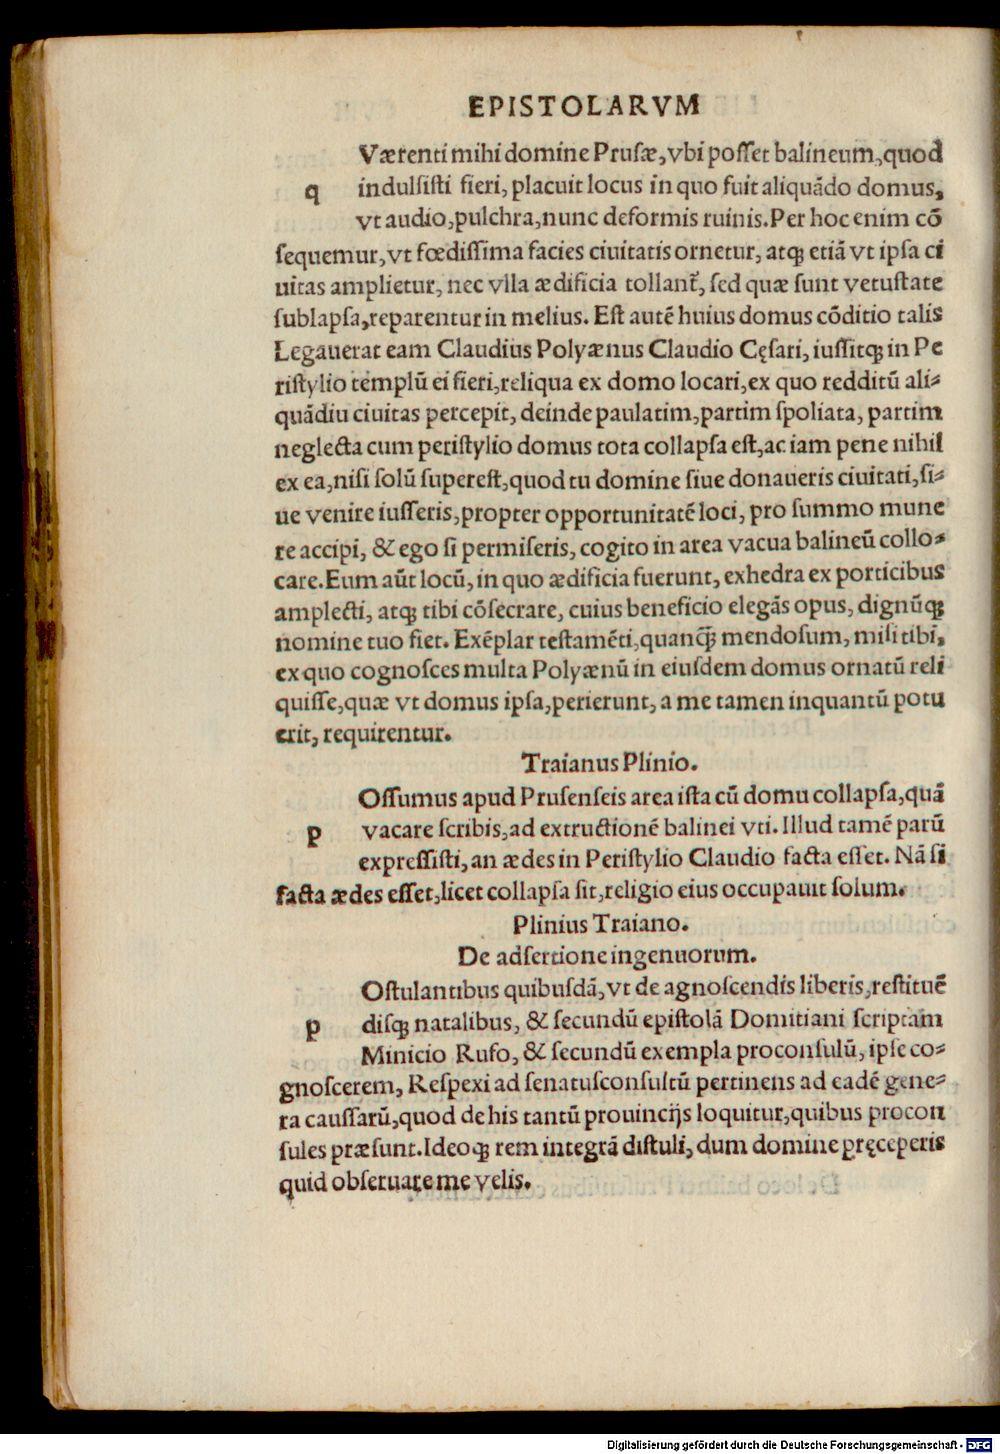 EPISTOLARVM
Væerenti mihi domine Prusæ, vbi posset balineum, quod
q indulsisti fieri, placuit locus in quo fuit aliquādo domus,
vt audio, pulchra, nunc deformis ruinis. Per hoc enim cō
sequemur, vt fœdissima facies ciuitatis ornetur, atq; etiā vt ipsa ci
uitas amplietur, nec vlla ædificia tollant᷑, sed quæ sunt vetustate
sublapsa, reparentur in melius. Est autē huius domus cōditio talis
Legauerat eam Claudius Polyænus Claudio Cęsari, iussitq; in Pe
ristylio templū ei fieri, reliqua ex domo locari, ex quo redditū ali⸗
quādiu ciuitas percepit, deinde paulatim, partim spoliata, partim
neglecta cum peristylio domus tota collapsa est, ac iam pene nihil
ex ea, nisi solū superest, quod tu domine siue donaueris ciuitati, si⸗
ue venire iusseris, propter opportunitatē loci, pro summo mune
re accipi, & ego si permiseris, cogito in area vacua balineū collo⸗
care. Eum aūt locū, in quo ædificia fuerunt, exhedra ex porticibus
amplecti, atq; tibi cōsecrare, cuius beneficio elegās opus, dignūq;
nomine tuo fiet. Exēplar testamēti, quanq̄; mendosum, misi tibi,
ex quo cognosces multa Polyænū in eiusdem domus ornatū reli
quisse, quæ vt domus ipsa, perierunt, a me tamen inquantū potu
erit, requirentur.
Traianus Plinio.
Ossumus apud Prusenseis area ista cū domu collapsa, quā
p vacare scribis, ad extructionē balinei vti. Illud tamē parū
expressisti, an ædes in Peristylio Claudio facta esset. Nā si
facta ædes esset, licet collapsa sit, religio eius occupauit solum.
Plinius Traiano.
De adsertione ingenuorum.
Ostulantibus quibusdā, vt de agnoscendis liberis, restituē
p disq; natalibus, & secundū epistolā Domitiani scriptam
Minicio Rufo, & secundū exempla proconsulū, ipse co⸗
gnoscerem, Respexi ad senatusconsultū pertinens ad eadē gene⸗
ra caussarū, quod de his tantū prouincijs loquitur, quibus procon
sules præsunt. Ideoq; rem integrā distuli, dum domine pręceperis
quid obseruare me velis.
Digitalisierung gefördert durch die Deutsche Forschungsgemeinschaft - DFG